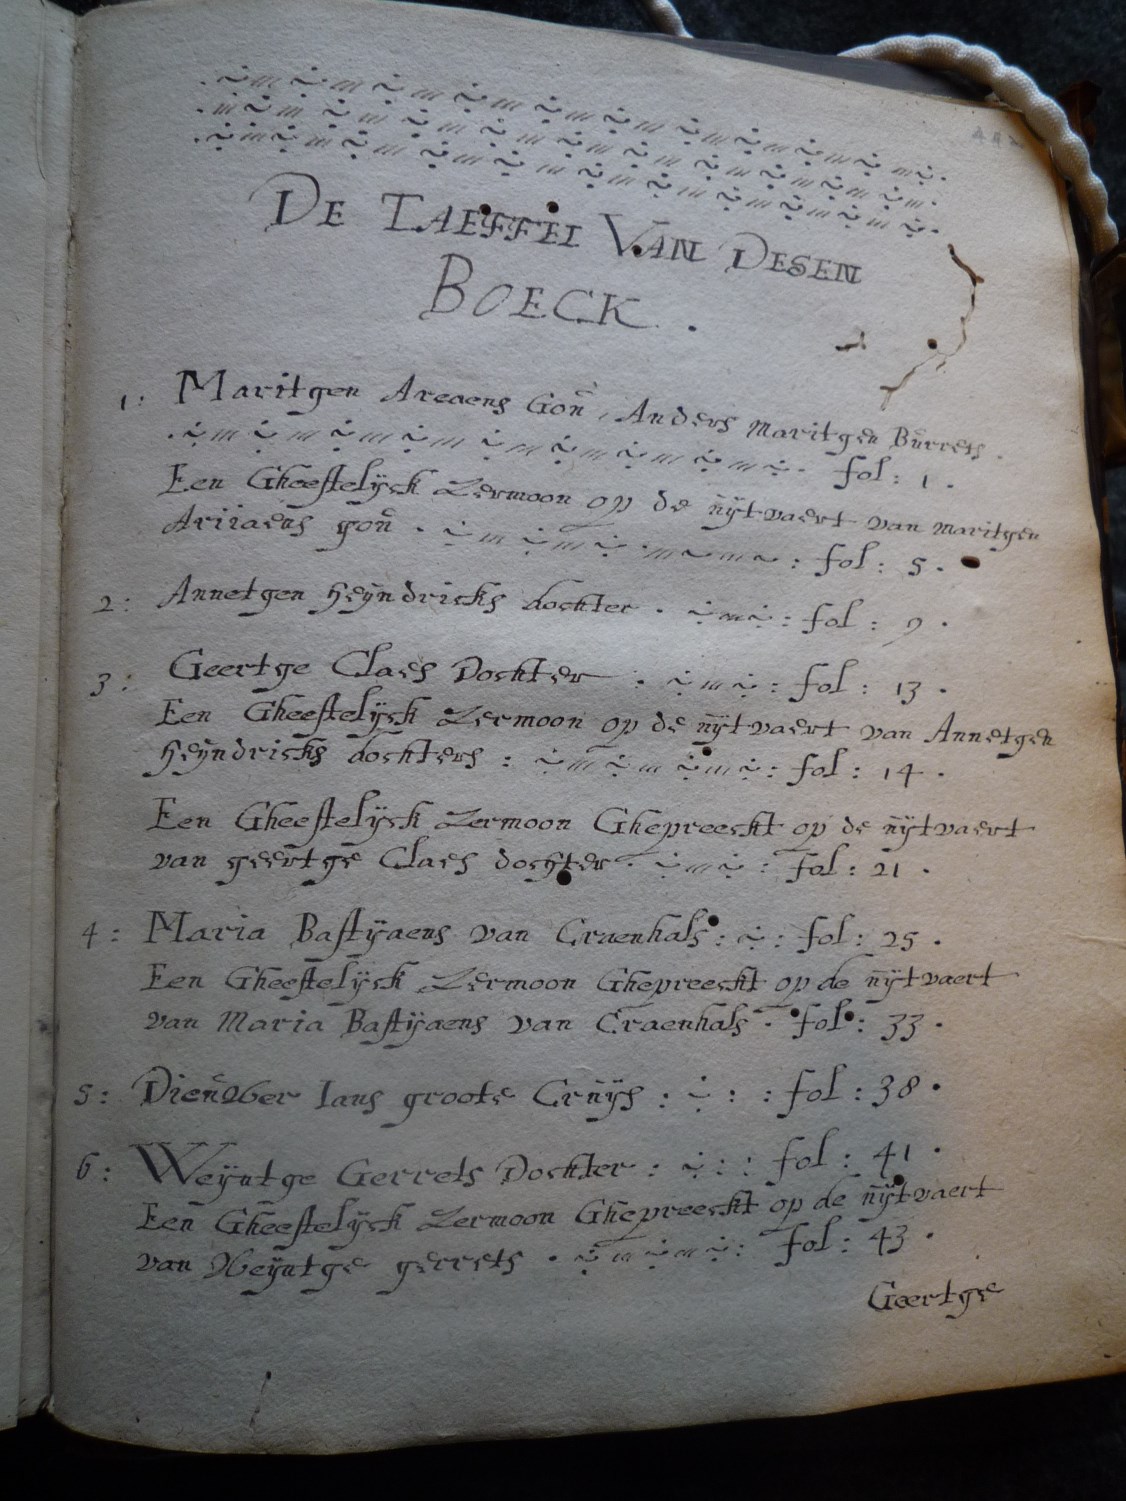 DE TAEFFEL VAN DESEN
BOECK.
1: Maritgen Areaens Goñ, Anders Maritgen Bűrrets.
fol: 1.
Een Gheestelÿck Zermoon op de űÿtvaert van maritgen
Ariiaens goñ. : fol: 5.
2: Annetgen heÿndricks dochter. : fol: 9.
3: Geertge Claes Dochter : fol: 13.
Een Gheestelÿck Zermoon op de űÿtvaert van Annetgen
heÿndricks dochters : fol: 14.
Een Gheestelÿck Zermoon Ghepreeckt op de űÿtvaert
van geertge Claes dochter. : fol: 21.
4: Maria Bastÿaens van Craenhals : fol: 25.
Een Gheestelÿck Zermoon Ghepreeckt op de űÿtvaert
van Maria Bastÿaens van Craenhals. fol: 33.
5: Ians groote Crűÿs : : fol: 38.
6: Weÿntge Gerrets Dochter : fol: 41.
Een Gheestelÿck Zermoon Ghepreeckt op de űÿtvaert
van Weÿntge gerrets . : fol: 43.
Geertge